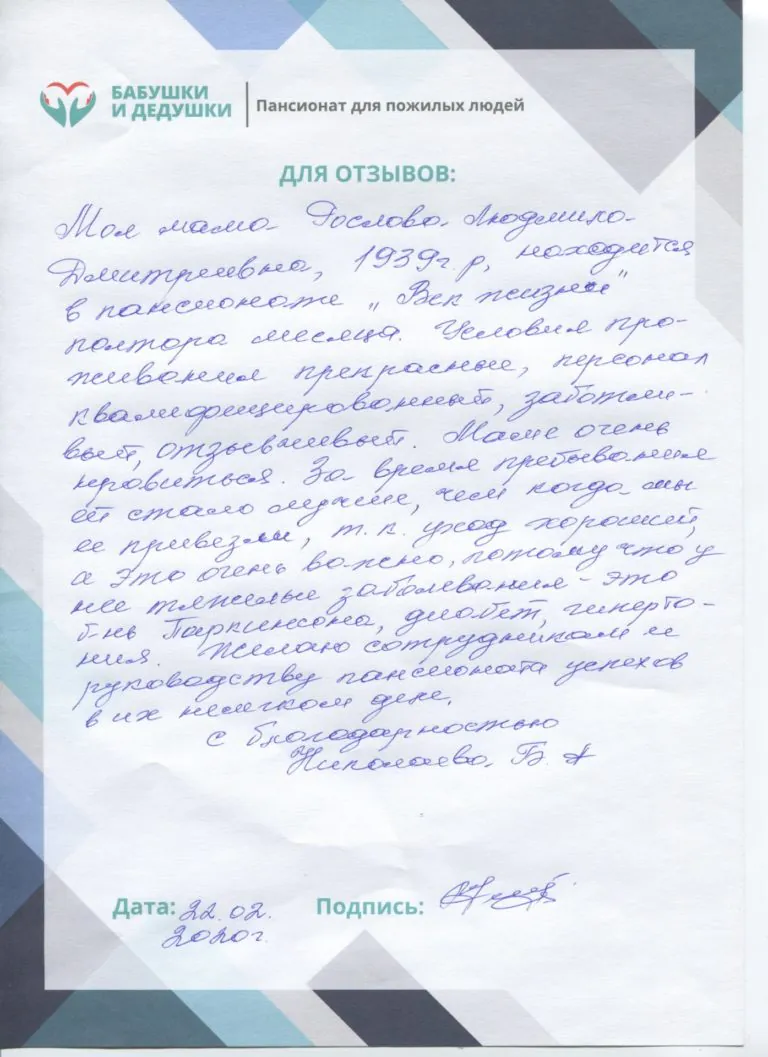 БАБУШКИ
И ДЕДУШКИ
Пансионат для пожилых людей
ДЛЯ ОТЗЫВОВ:
Моя мама Рослова Людмила
Дмитриевна, 1939г.р, находится
в пансионате „Век жизни"
полтора месяца. Условия про-
живания прекрасные, персонал
квалифицированный, заботли-
вый, отзывчивый. Маме очень
нравиться. За время пребывания
ей стало лучше, чем когда мы
ее привезли, т.к. уход хороший,
а это очень важно, потому что у
нее тяжелые заболевания - это
б-нь Паркинсона, диабет, гиперто-
ния. Желаю сотрудникам и
руководству пансионата успехов
в их нелегком деле.
с благодарностью
Николаева Б. А
Дата: 22.02.
2020г.
Подпись: